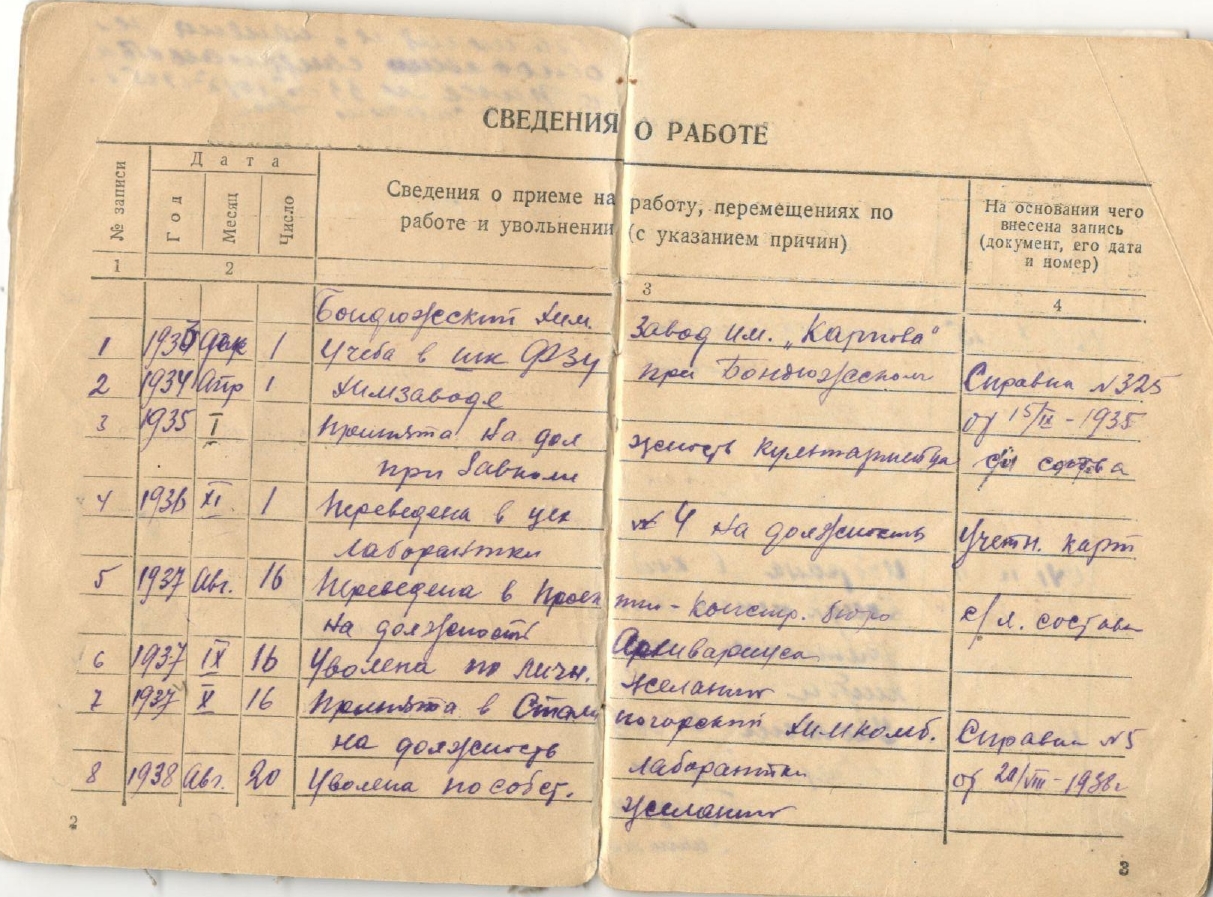 СВЕДЕНИЯ О РАБОТЕ
№ записи
Дата
Год
Месяц
Число
Сведения о приеме на работу, перемещениях по
работе и увольнении (с указанием причин)
На основании чего
внесена запись
(документ, его дата
и номер)
1 2 3 4
Бондюжский Хим. Завод им. „Карпова“
1 1933 дек 1 Учеба в шк ФЗУ при Бондюжском Справка №325
2 1934 Апр 1 Химзаводе от 15/IX-1935
3 1935 I Принята на дол жность культармейца с/л состава
при Завкоме
4 1936 XI 1 Переведена в цех №4 на должность Учетн. карт
лаборантки
5 1937 Авг. 16 Переведена в Проек тн-Констр. бюро с/л. состава
на должность Архивариуса
6 1937 IX 16 Уволена по личн. желанию
7 1937 X 16 Принята в Стали ногорский Химкомб. Справка №5
на должность лаборантки от 20/VIII-1938г
8 1938 Авг. 20 Уволена по собст. желанию
2
3